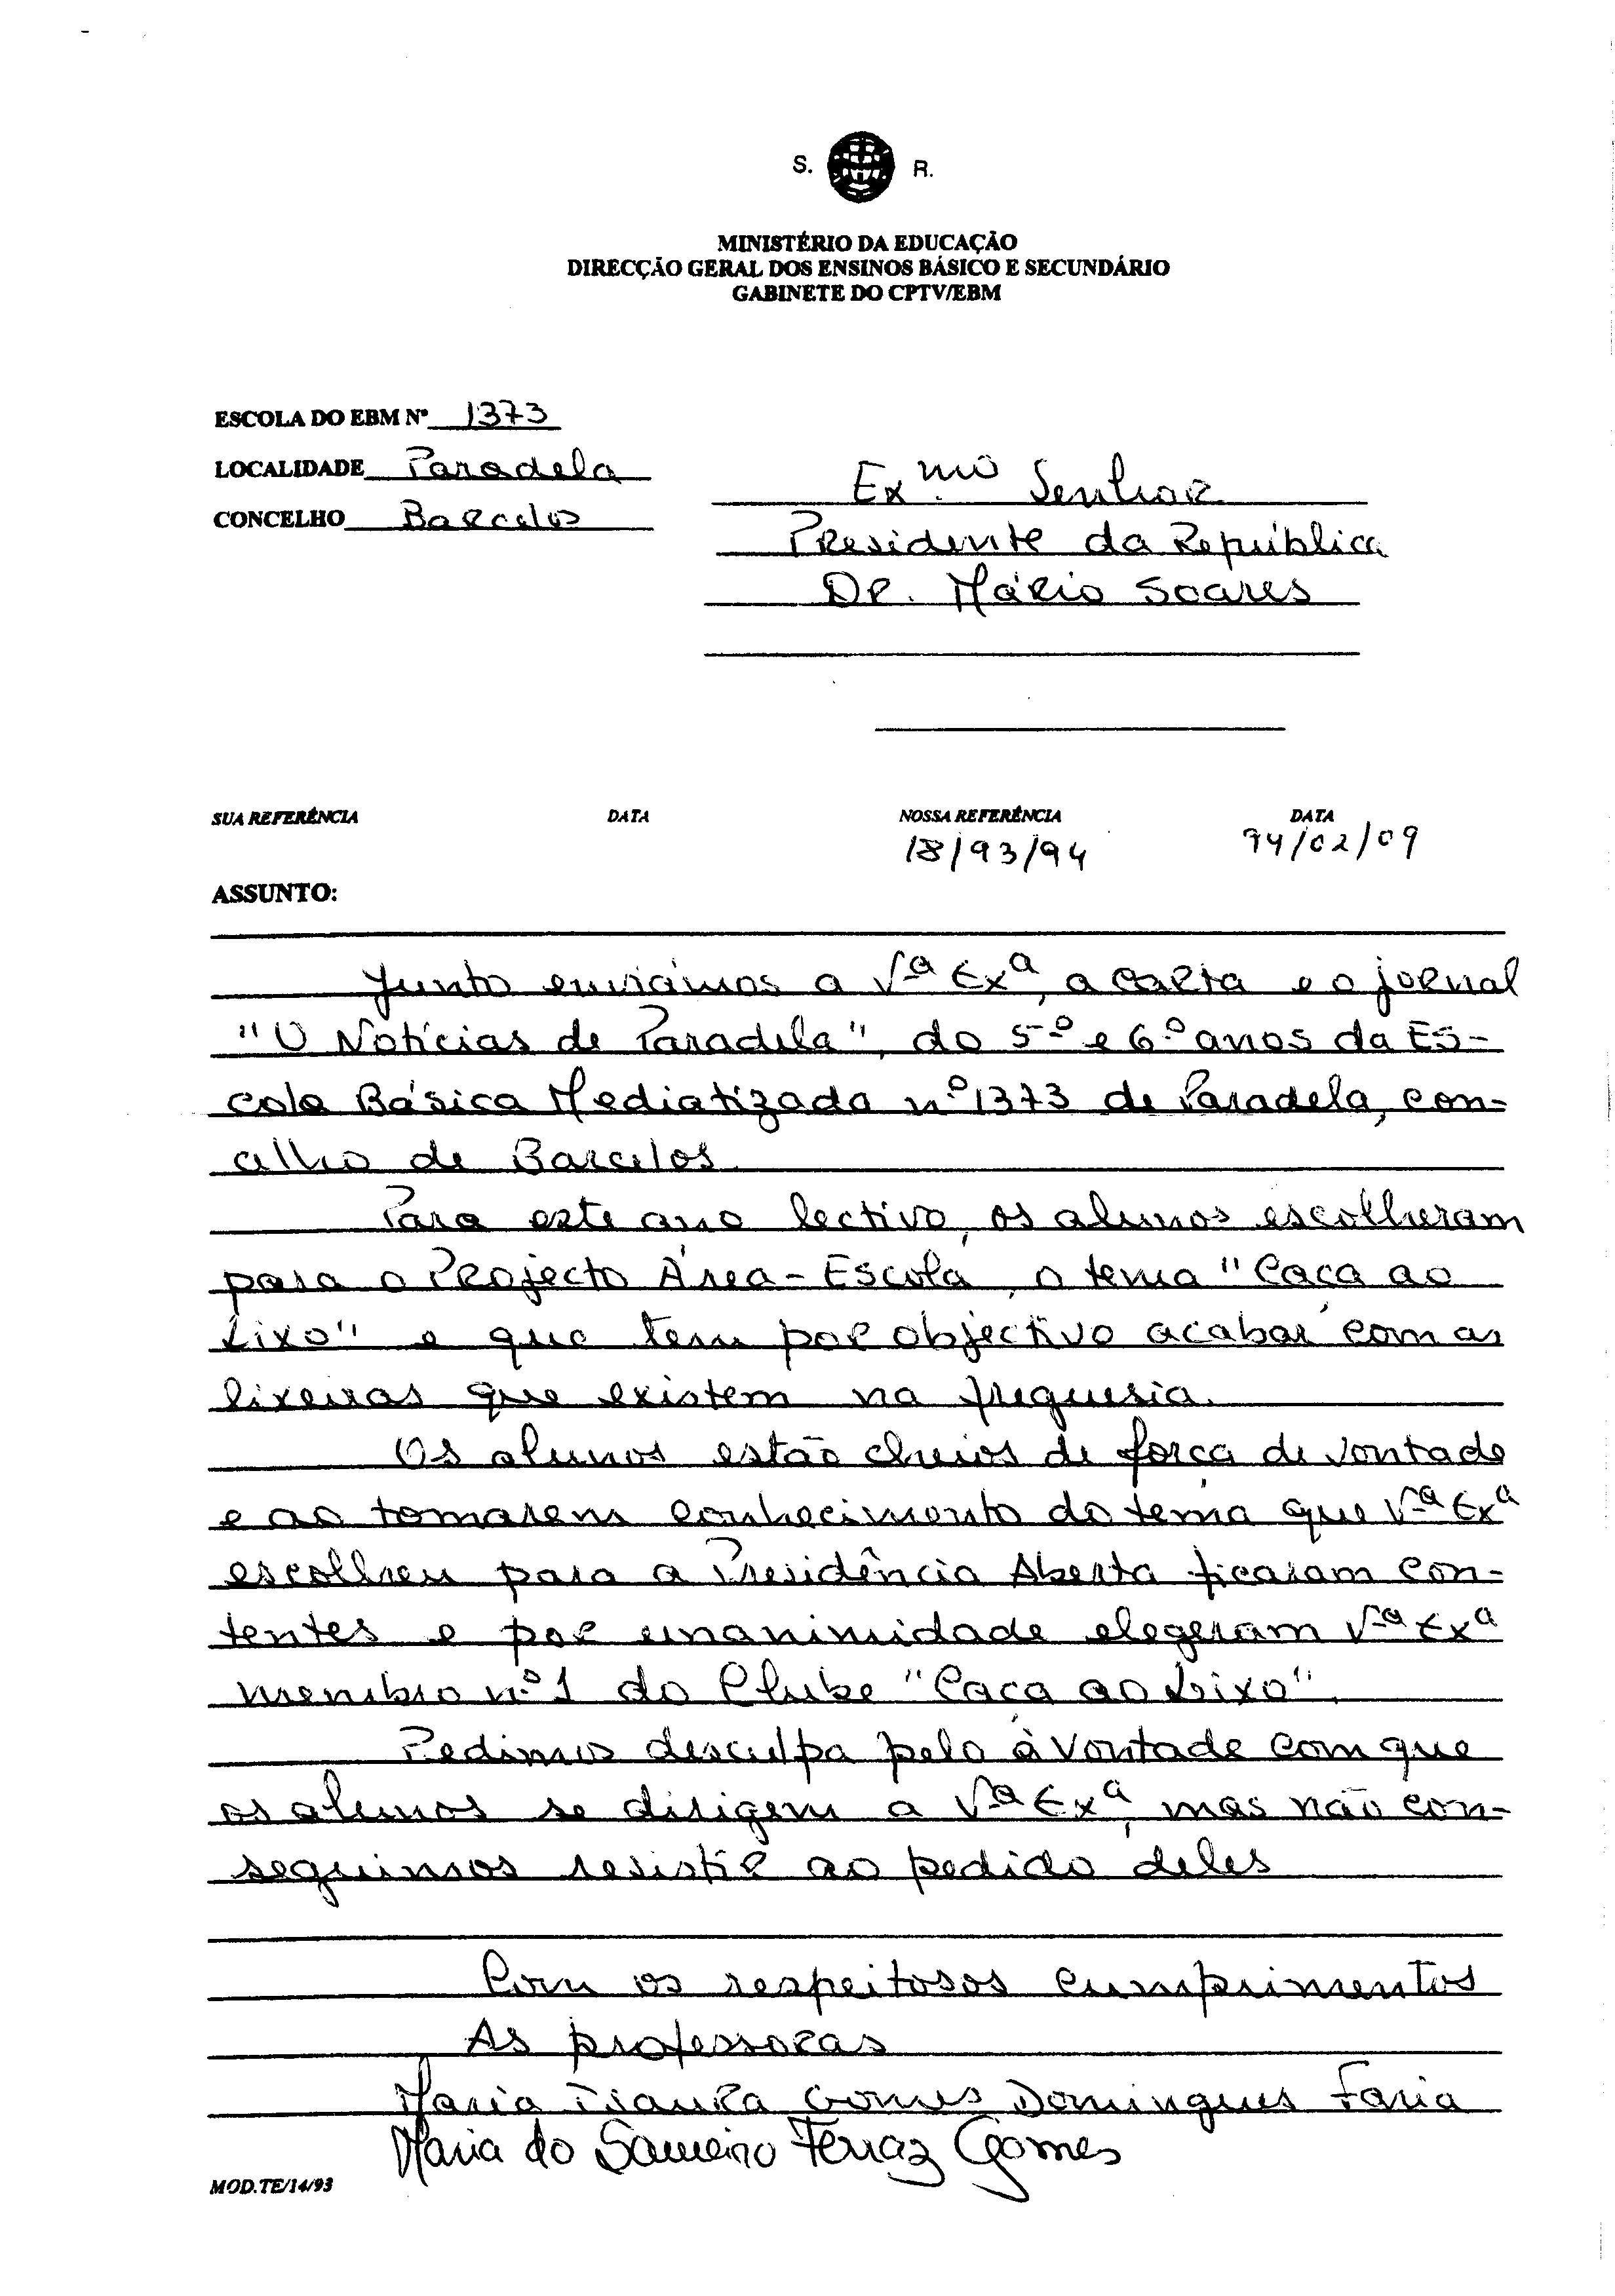 S. R.
MINISTÉRIO DA EDUCAÇÃO
DIRECÇÃO GERAL DOS ENSINOS BÁSICO E SECUNDÁRIO
GABINETE DO CPTV/EBM
ESCOLA DO EBM Nº 1373
LOCALIDADE Paradela
CONCELHO Barcelos
Ex.mo Senhor
Presidente da República
Dr. Mário Soares
SUA REFERÊNCIA DATA NOSSA REFERÊNCIA DATA
18/93/94 94/02/09
ASSUNTO:
Junto enviámos a Vª Exª, a carta e o jornal
"O Notícias de Paradela", do 5º e 6º anos da Es-
cola Básica Mediatizada nº 1373 de Paradela, con-
celho de Barcelos.
Para este ano lectivo, os alunos escolheram
para o Projecto Área-Escola, o tema "Caça ao
Lixo" e que tem por objectivo acabar com as
lixeiras que existem na freguesia.
Os alunos estão cheios de força de vontade
e ao tomarem conhecimento do tema que Vª Exª
escolheu para a Presidência Aberta ficaram con-
tentes e por unanimidade elegeram Vª Exª
membro nº 1 do Clube "Caça ao Lixo".
Pedimos desculpa pelo à vontade com que
os alunos se dirigem a Vª Exª, mas não con-
seguimos resistir ao pedido deles
Com os respeitosos cumprimentos
As professoras
Maria Isaura Gomes Domingues Faria
Maria do Sameiro Ferraz Gomes
MOD.TE/14/93